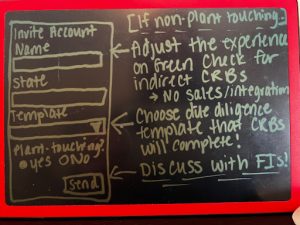 Invite Account
Name
State
Template
Plant-touching?
yes No
Send
[If non-plant touching...]
Adjust the experience
on Green Check for
indirect CRBs
→ No sales/integration
Choose due diligence
template that CRBs
will complete!
Discuss with FIs!